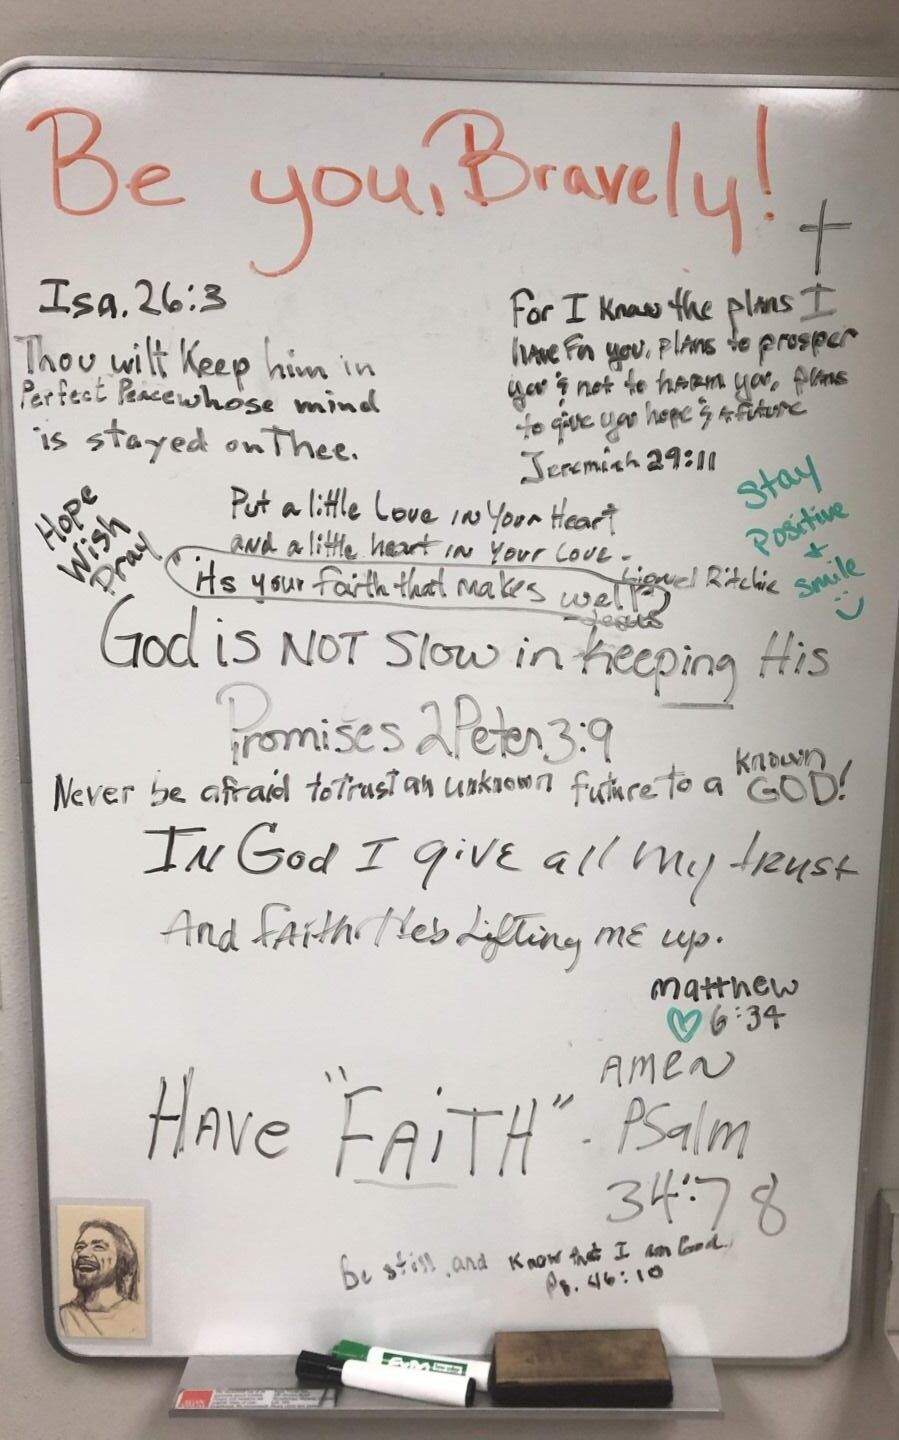 Be you, Bravely!
Isa. 26:3
Thou wilt Keep him in
Perfect Peace whose mind
is stayed on Thee.
For I Know the plans I
have for you, plans to prosper
you & not to harm you, plans
to give you hope & a future
Jeremiah 29:11
Hope
Wish
Pray
Stay
Positive
+
Smile
Put a little Love in Your Heart
and a little heart in your Love -
Lionel Ritchie
"its your faith that makes well"
- Jesus
God is NOT Slow in Keeping His
Promises 2 Peter 3:9
Never be afraid to Trust an unknown future to a known GOD!
In God I give all my trust
And faith. He's Lifting me up.
Matthew
6:34
AMEN
Have "FAiTH" - PSalm
34:7 8
Be still, and Know that I am God.
Ps. 46:10
EXPO